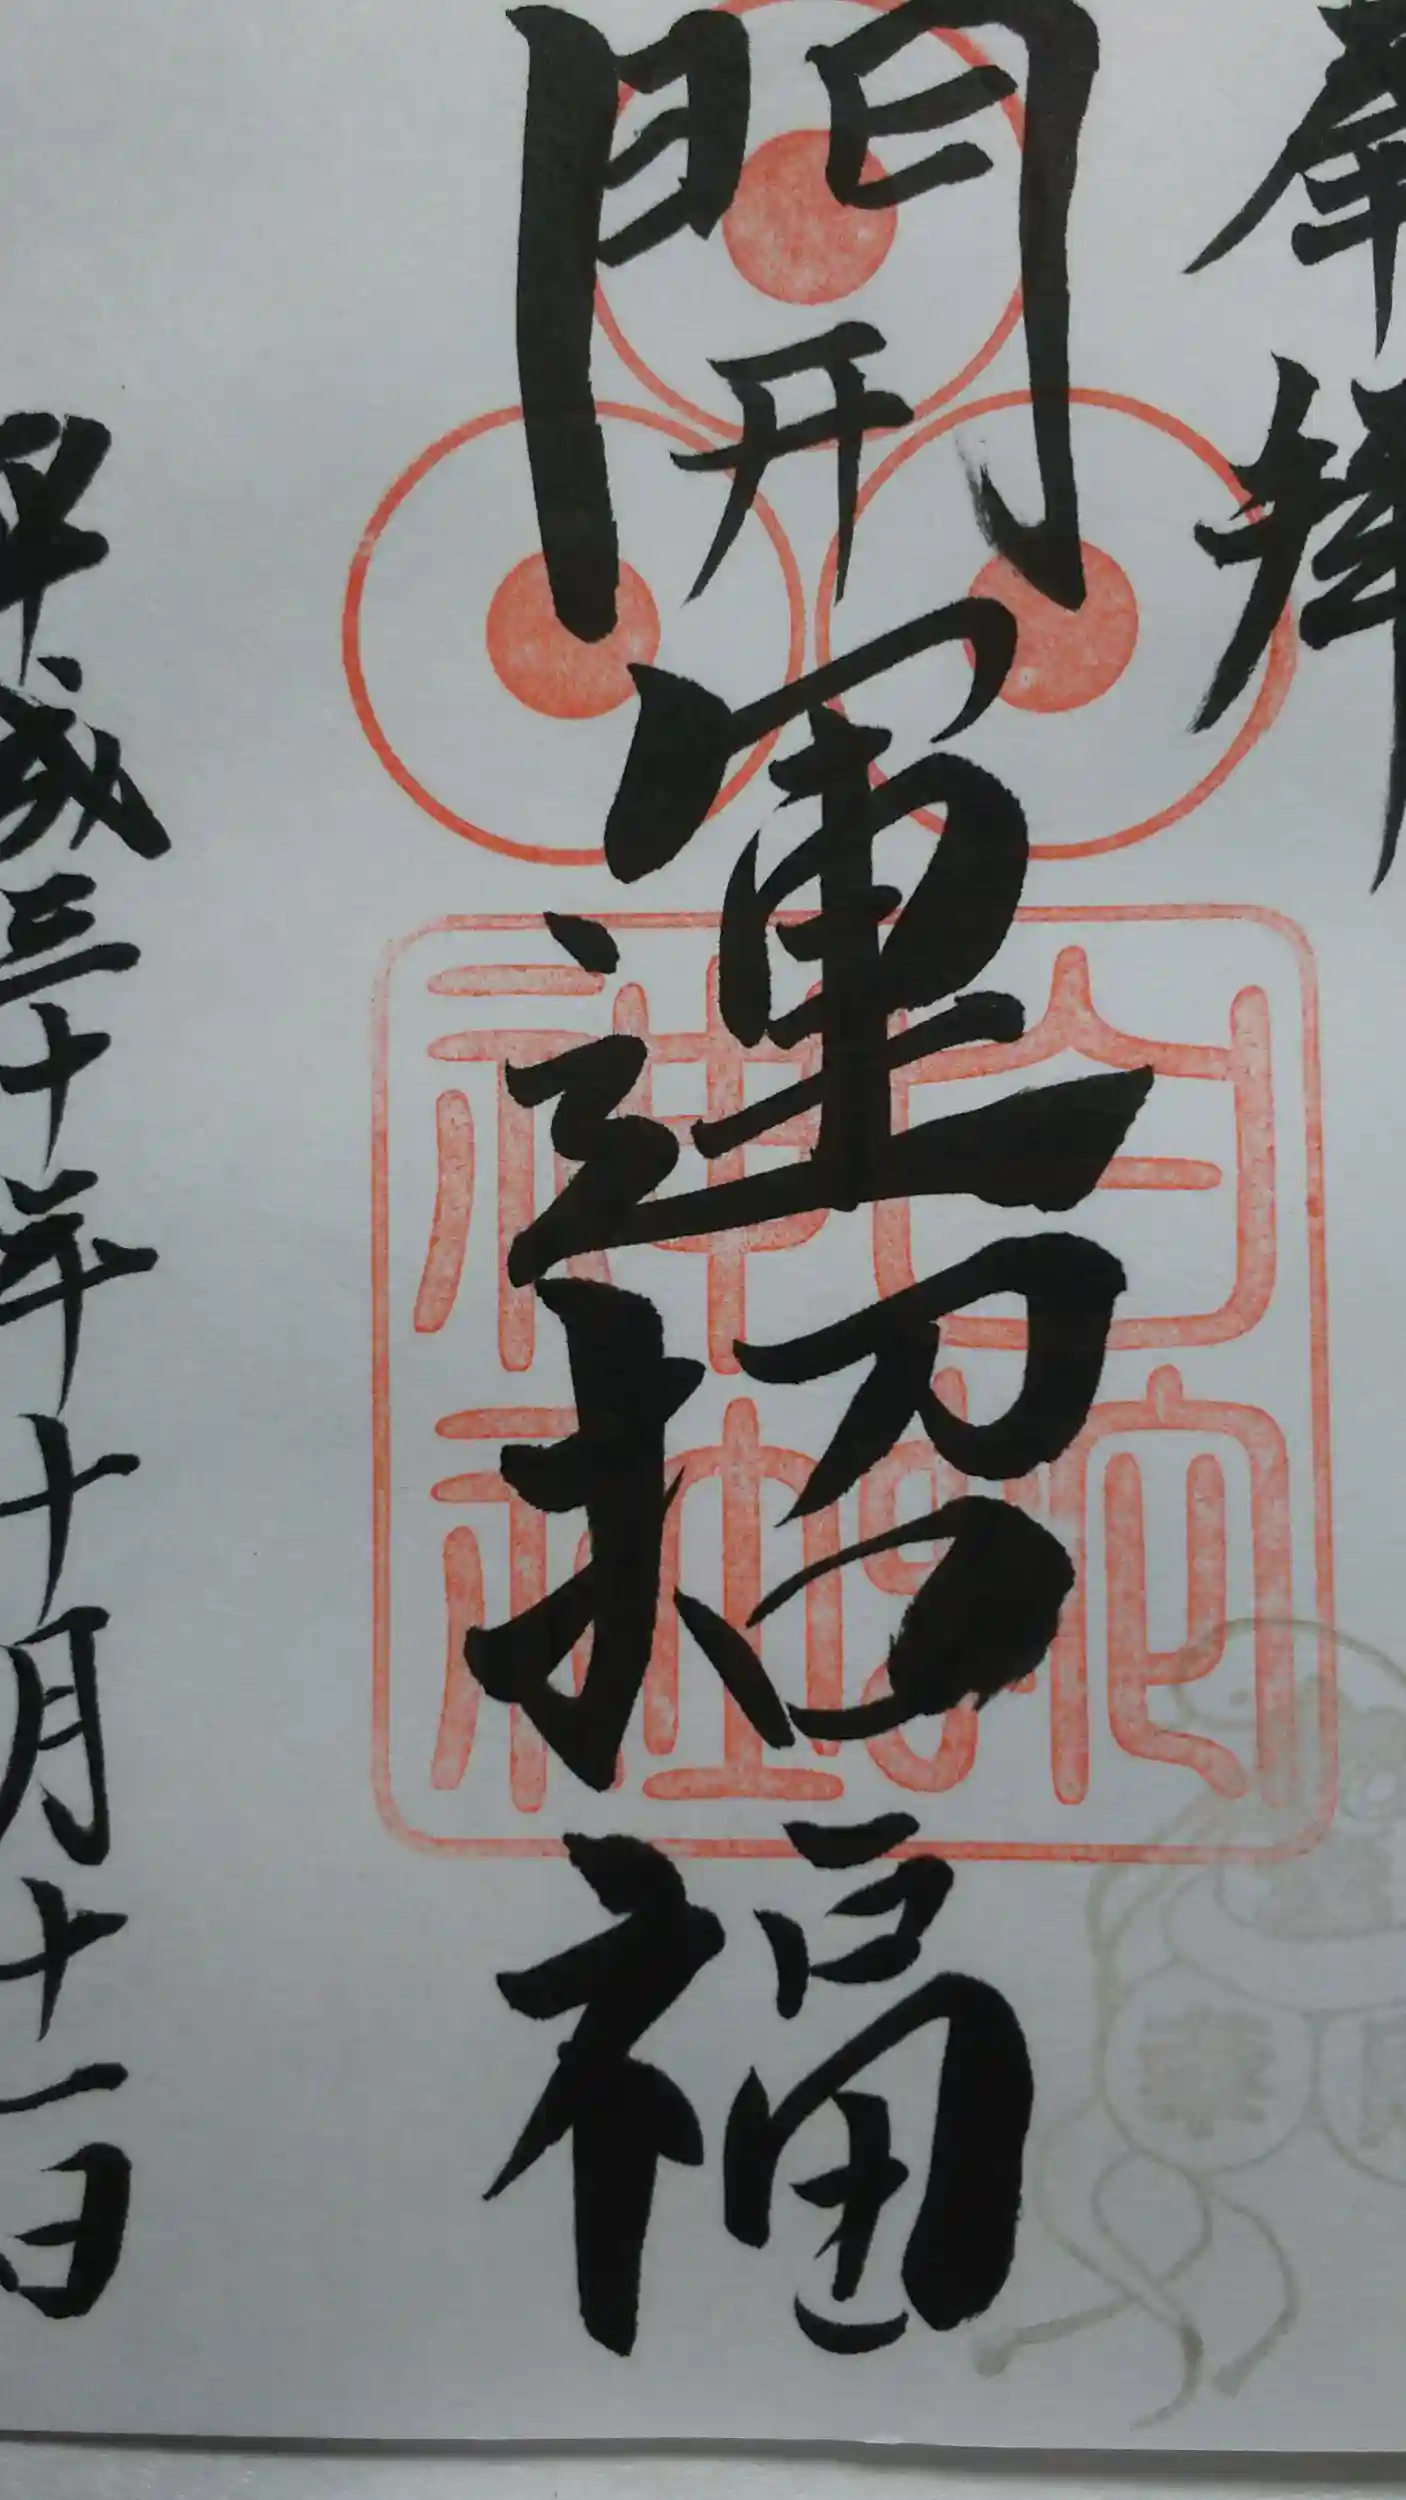 奉拝
開運招福
白蛇神社
平成三十年十月十一日